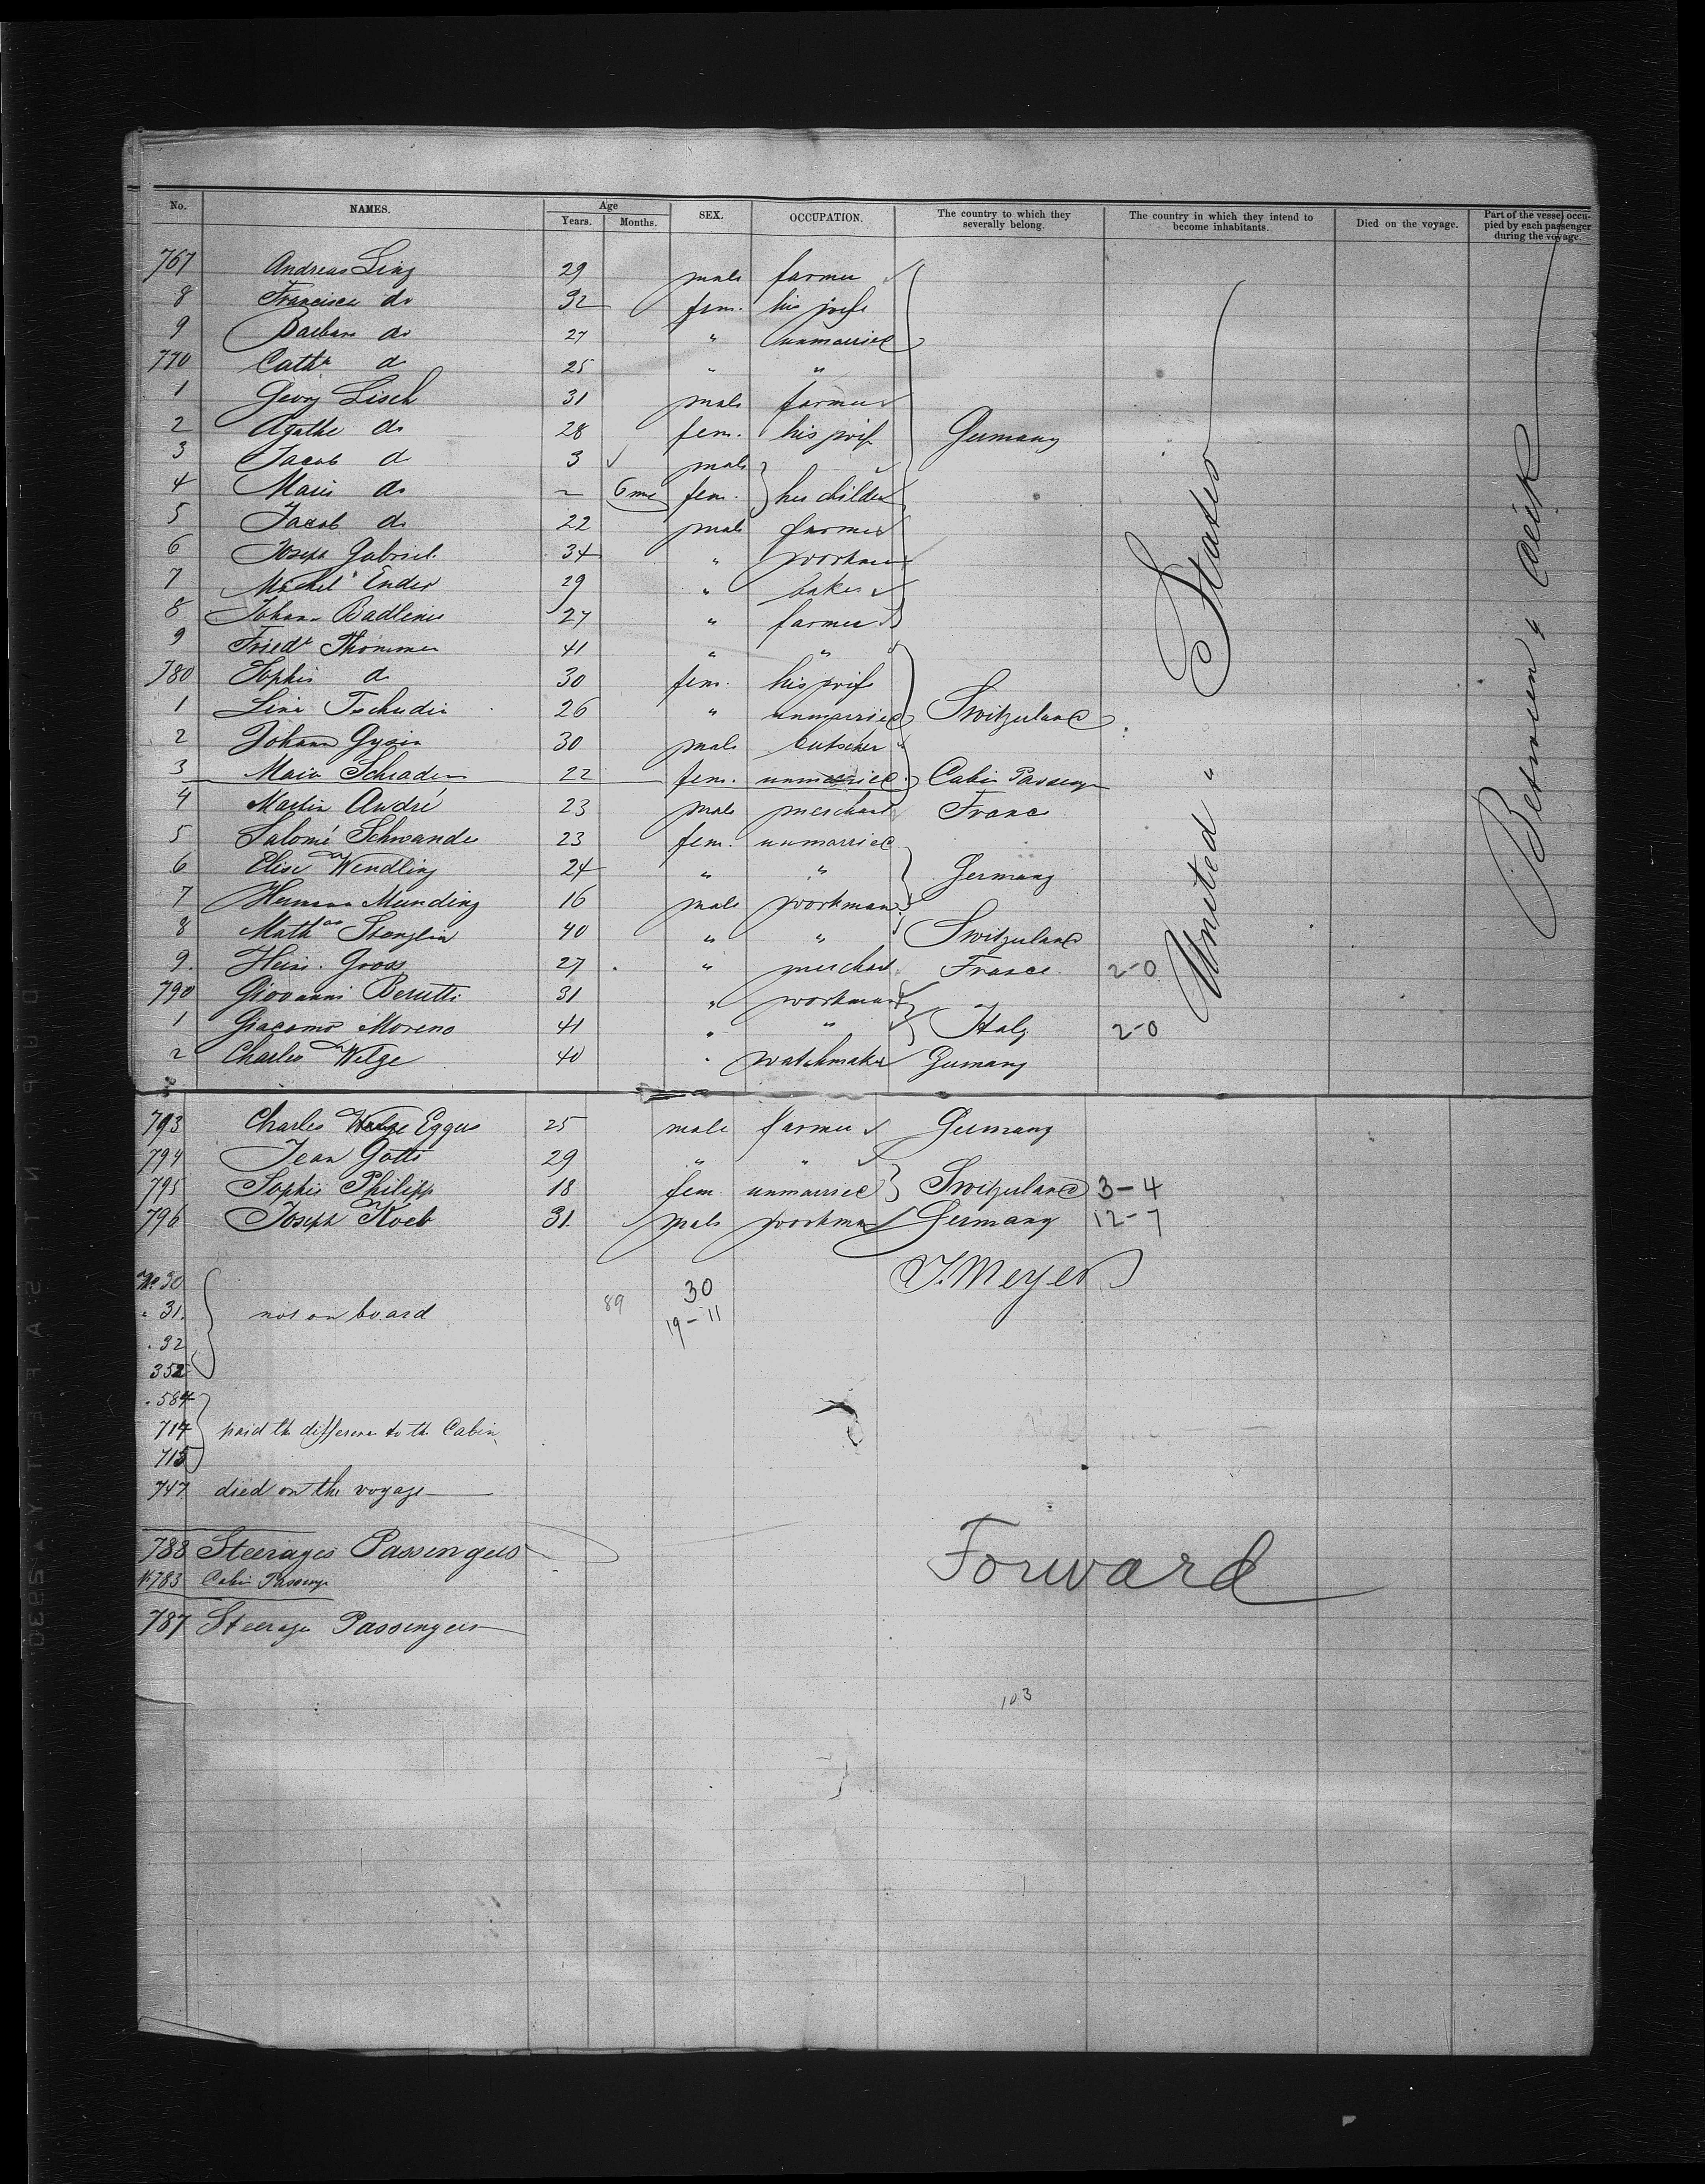 No. NAMES. Age Years. Months. SEX. OCCUPATION. The country to which they severally belong. The country in which they intend to become inhabitants. Died on the voyage. Part of the vessel occupied by each passenger during the voyage.
767 Andreas Ling 29 male farmer
8 Francisca do 32 fem. his wife
9 Barbara do 27 " unmarried
770 Cath. do 25 " "
1 Georg Lisch 31 male farmer
2 Agathe do 28 fem. his wife Germany
3 Jacob do 3 male
4 Marie do – 6 mo fem. her children
5 Jacob do 22 male farmer
6 Joseph Gabriel 34 " workman
7 Michel Ender 29 " baker
8 Johann Badlener 27 " farmer
9 Friedr Thommen 41 " "
780 Sophie do 30 fem. his wife
1 Line Tschudin 26 " unmarried Switzerland
2 Johann Gysin 30 male butscher
3 Maria Schrader 22 fem. unmarried Cabin Passenger
4 Martin André 23 male merchant France
5 Salomé Schwander 23 fem. unmarried
6 Elise Wendling 24 " " Germany
7 Hermann Munding 16 male workman
8 Mathas Stenzlin 40 " " Switzerland
9. Heinr. Gross 27 " merchant France 2-0
790 Giovanni Berutti 31 " workman
1 Giacomo Moreno 41 " " Italy 2-0
2 Charles Welge 40 " watchmaker Germany
United States
Between Deck
793 Charles Welge Eggers 25 male farmer Germany
794 Jean Gotti 29 " "
795 Sophie Philipp 18 fem unmarried Switzerland 3-4
796 Joseph Koeb 31. male workman Germany 12-7
J. Meyer
No. 30
" 31. not on board 89 30
19-11
. 32
352
. 584
714 paid the difference to the Cabin
715
747 died on the voyage
788 Steerages Passengers
No 783 Cabin Passenger
Forward
787 Steerage Passengers
103